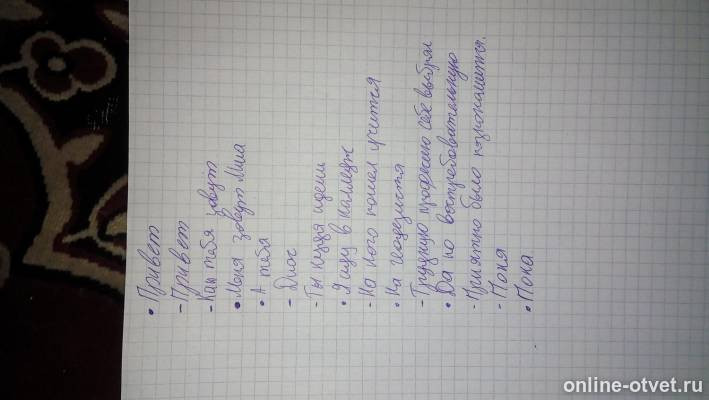 • Привет
- Привет
- Как тебя зовут
• Меня зовут Миша
• А тебя
- Диас
- Ты куда идеш
• Я иду в Каледж
- На кого пошел учится
• На геодезиста
- Трудную професию себе выбрал
• Да но востребовательную
- Приятно было познакомится.
- Пока
• Пока.
online-otvet.ru